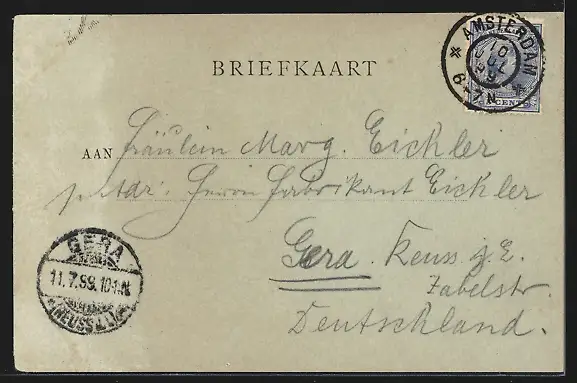 AMSTERDAM
10 JUL 99
6-7N
CENT
BRIEFKAART
AAN Fräulein Marg. Eickler
p. Adr. Herrn Fabrikant Eickler
Gera. Reuss j. L.
Zabelstr.
Deutschland.
GERA
11.7.99.10-11.N.
(REUSS J. L.)